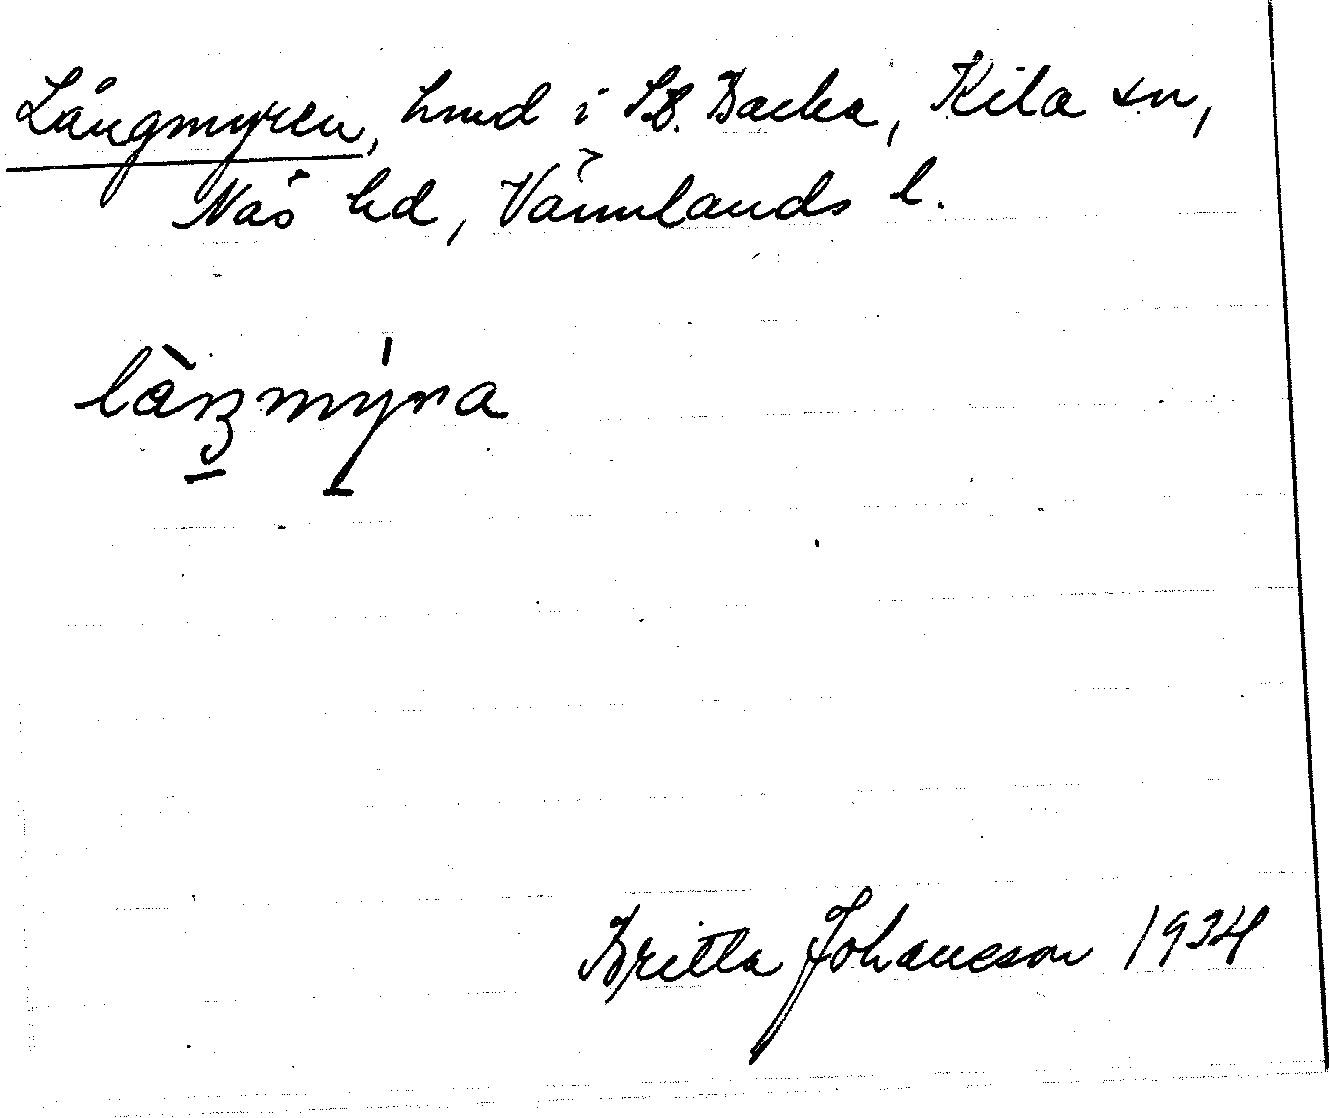 Långmyren, hmd i St. Backa, Kila sn,
Näs hd, Värmlands l.
låŋmýra
Britta Johansson 1934